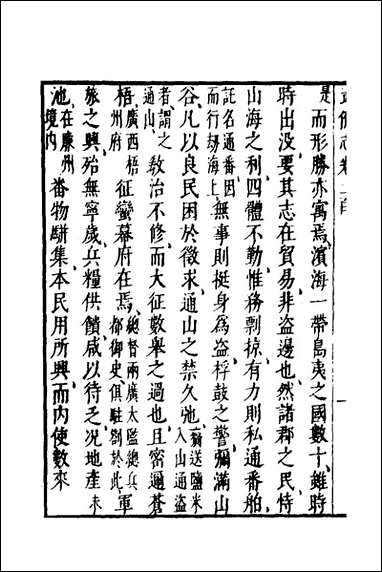 備志卷二百
是而形勝亦寓焉濱海一帶島夷之國數十雖時
時出没要其志在貿易非盗邊也然諸郡之民恃
山海之利四體不動惟務剽掠有力則私通番舶
託名通番因而行刼海上無事則挺身為盗桴鼓之警彌滿山
谷凡以良民困於徵求通山之禁乆弛翁送鹽米入山通盗
者謂之通山敎治不修而大征數舉之過也且密邇蒼
梧廣西梧州府征蠻幕府在焉總督兩廣太監總兵都御史俱駐劄於此軍
旅之興殆無寧歲兵糧供饋咸以待乏况地產未
池在廉州境内番物駢集本民用所興而内使數來